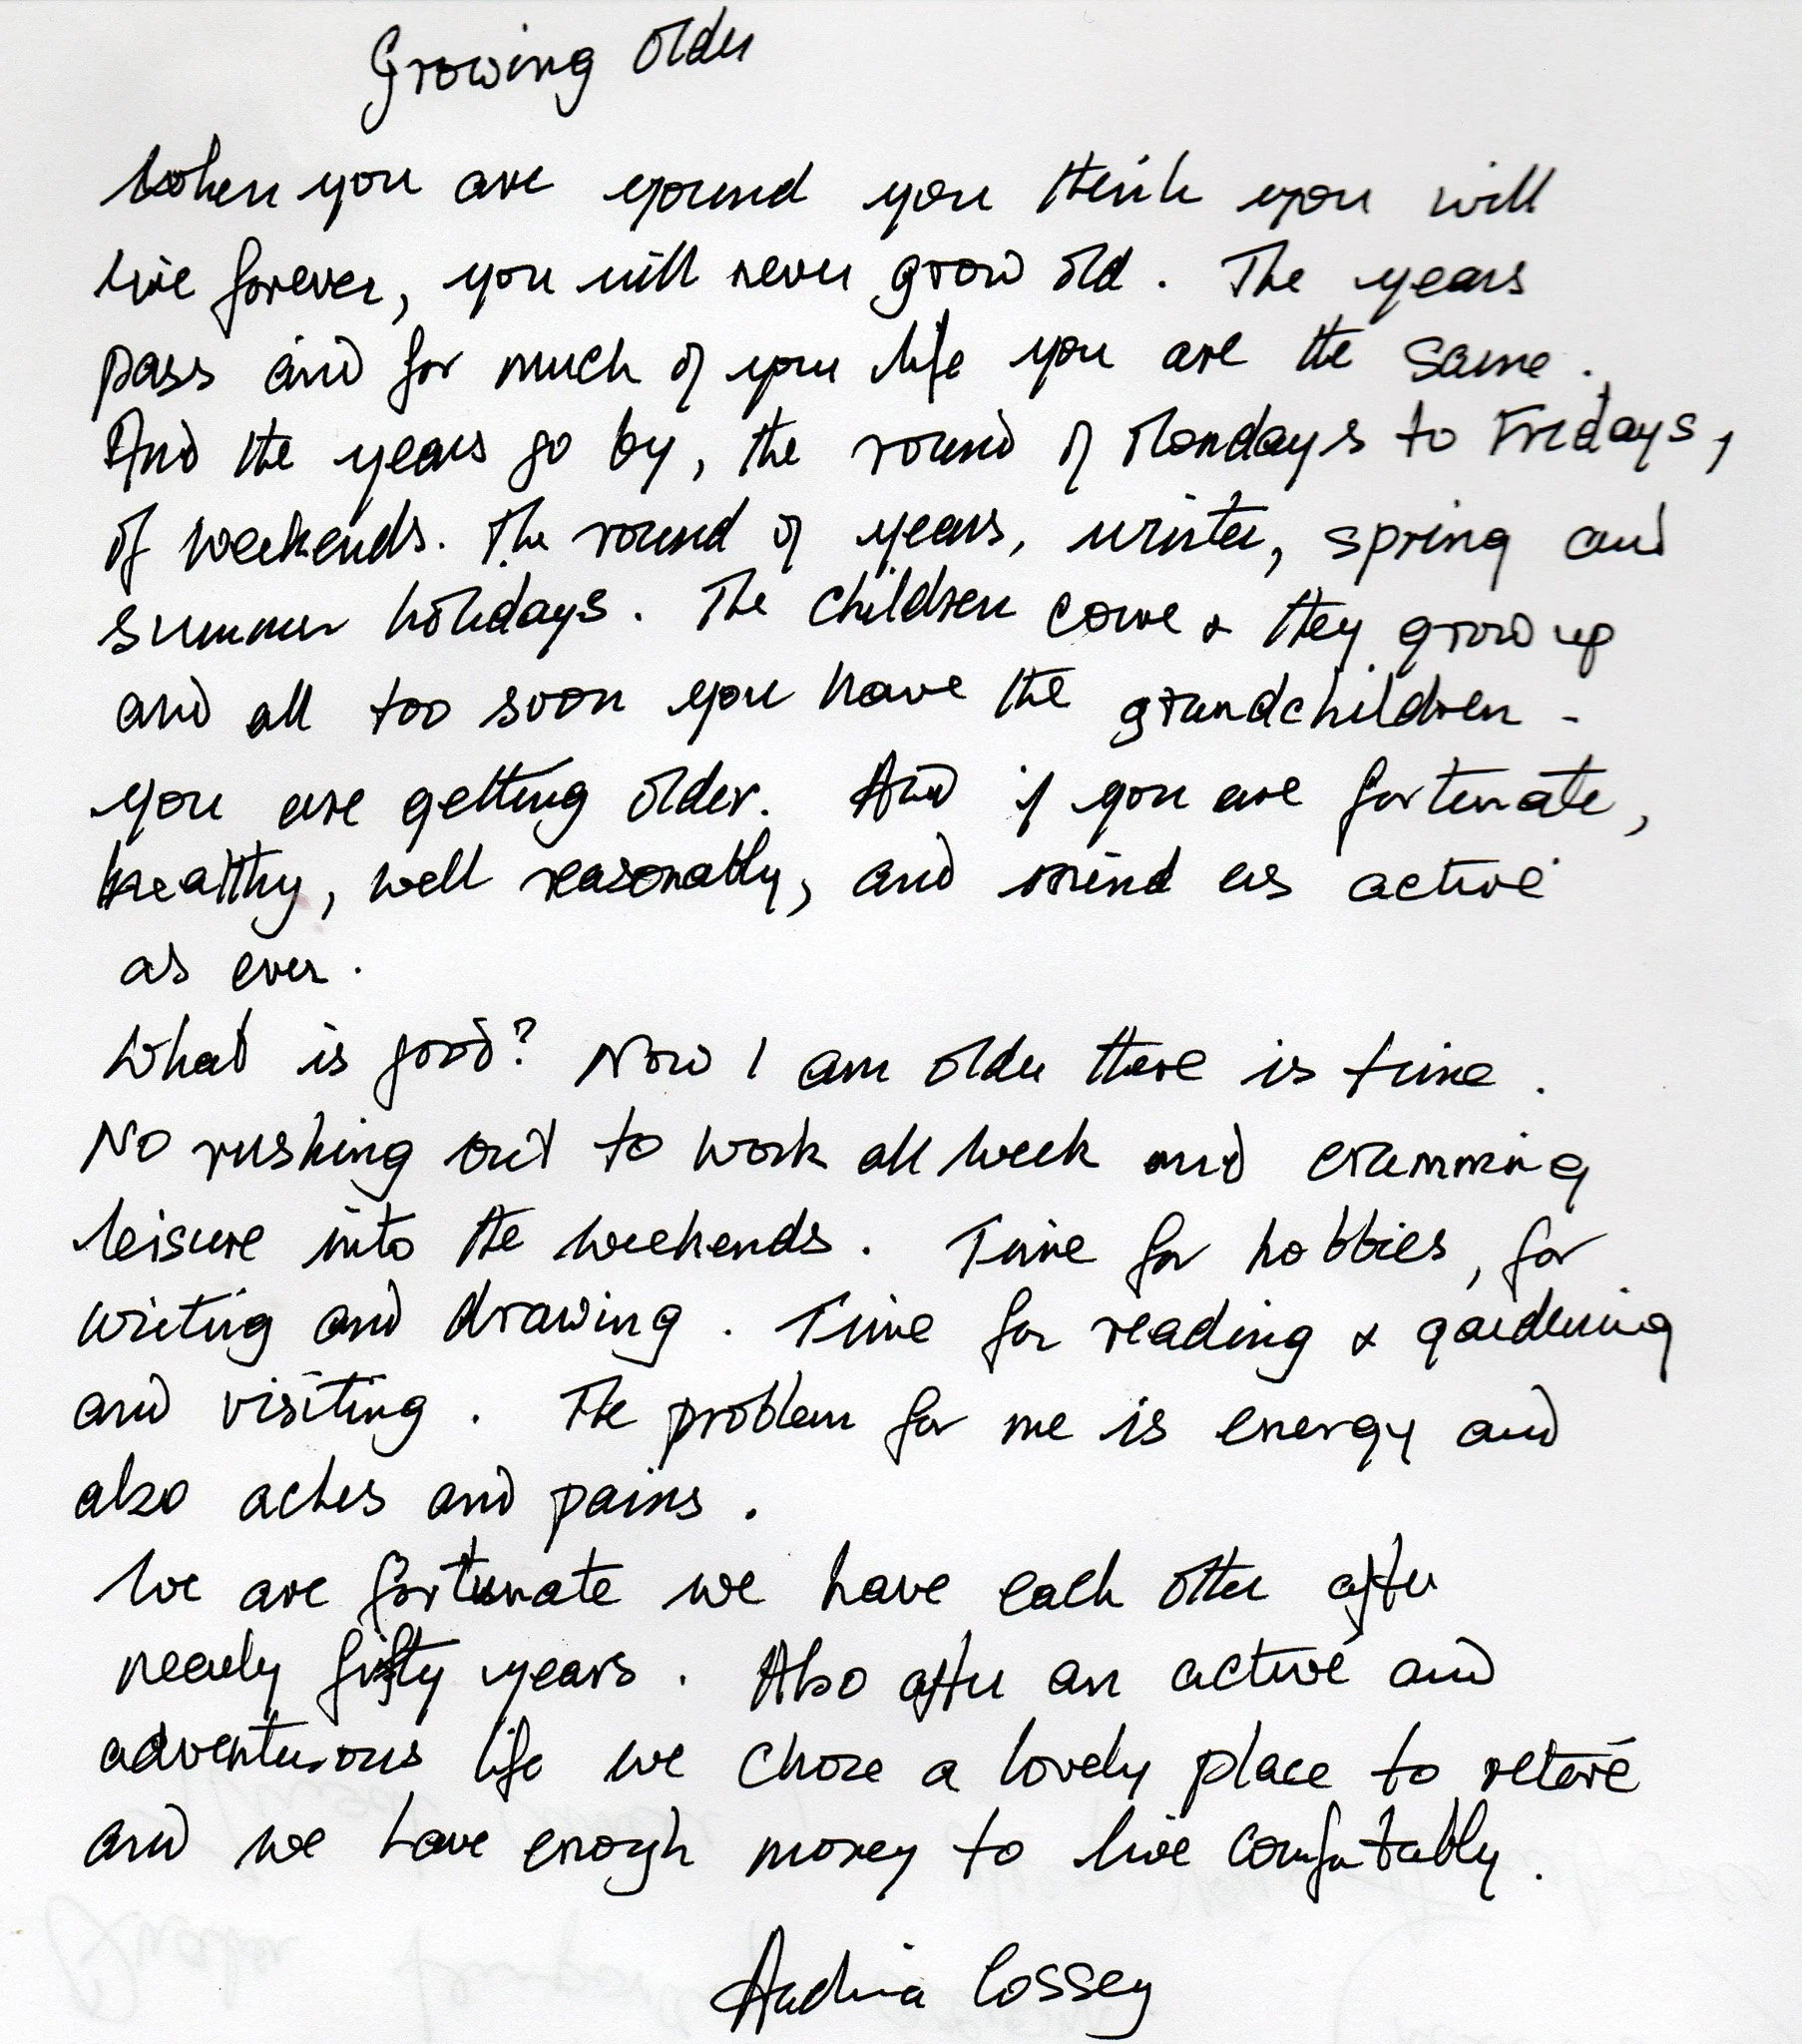 Growing Older
When you are yound you think you will
live forever, you will never grow old. The years
pass and for much of your life you are the same.
And the years go by, the round of Mondays to Fridays,
of weekends. The round of years, winter, spring and
summer holidays. The children come & they grow up
and all too soon you have the grandchildren -
you are getting older. And if you are fortunate,
healthy, well reasonably, and mind as active
as ever.
What is good? Now I am older there is time.
No rushing out to work all week and cramming
leisure into the weekends. Time for hobbies, for
writing and drawing. Time for reading & gardening
and visiting. The problem for me is energy and
also aches and pains.
We are fortunate we have each other after
nearly fifty years. Also after an active and
adventurous life we chose a lovely place to retire
and we have enough money to live comfortably.
Cossey